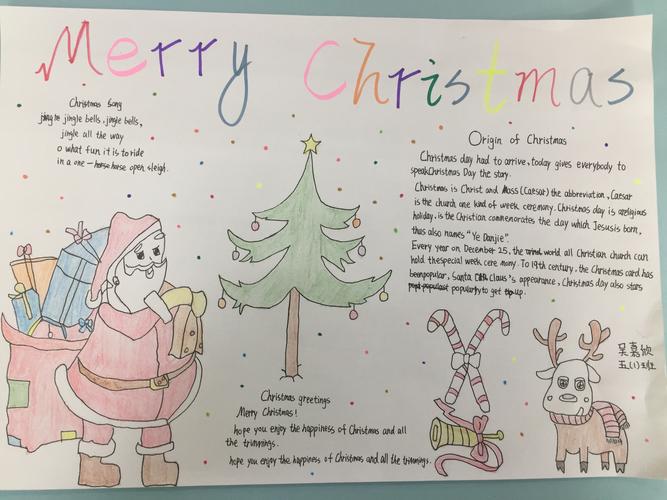 Merry Christmas
Christmas Song
jingle bells, jingle bells,
jingle all the way
o what fun it is to ride
in a one-horse open sleigh.
Origin of Christmas
Christmas day had to arrive, today gives everybody to
speak Christmas Day the story.
Christmas is Christ and Mass (Caesar) the abbreviation, Caesar
is the church, one kind of week ceremony. Christmas day is a religious
holiday, is the Christian commenorates the day which Jesus is born,
thus also names "Ye Danjie".
Every year on December 25, the world all Christian church can
hold the special week, cere mony. To 19th century, the Christmas card has
been popular, Santa Claus's appearance, Christmas day also stars
popularty to get up.
Christmas greetings
Merry Christmas!
hope you enjoy the happiness of Christmas and all
the trimmings.
hope you enjoy the happiness of Christmas and all the trimmings.
吴嘉欣
五(1)班